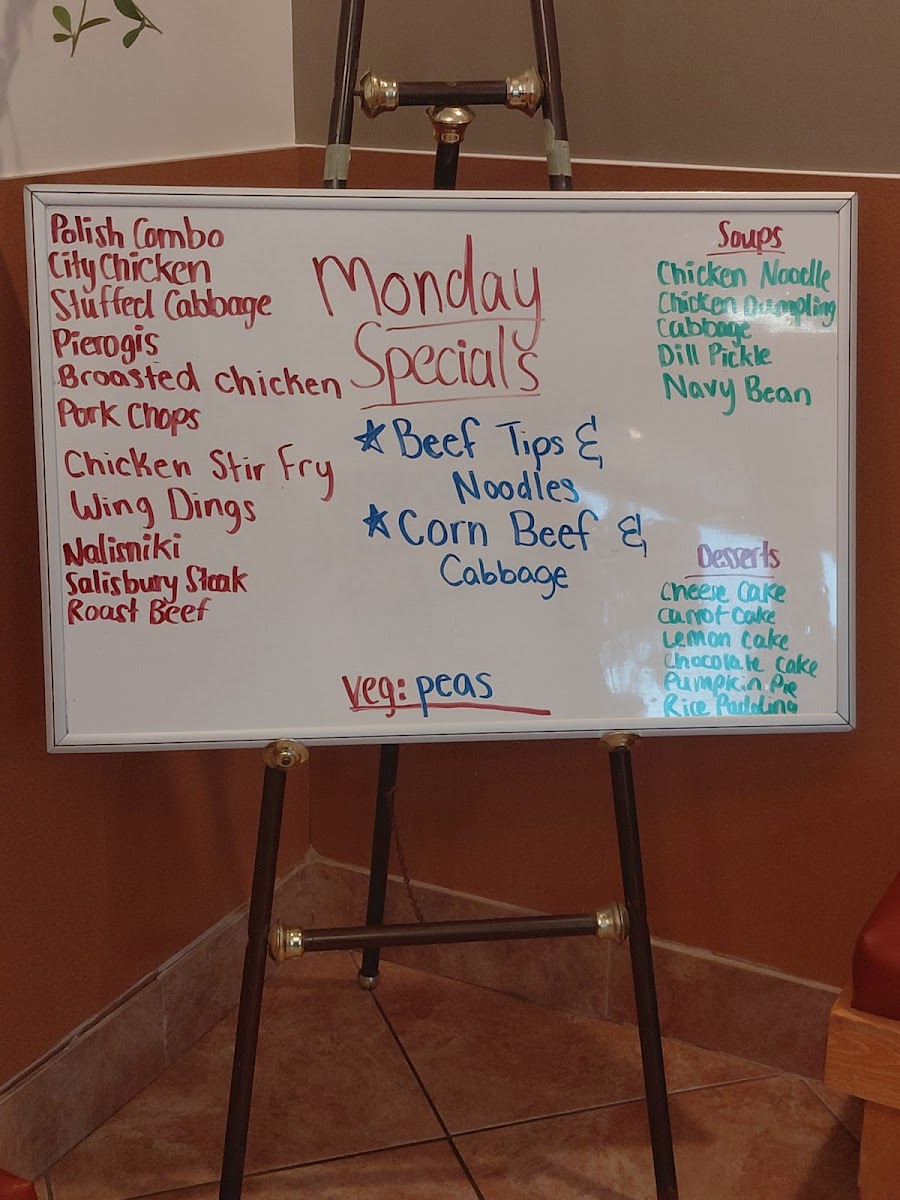 Polish Combo
City Chicken
Stuffed Cabbage
Pierogis
Broasted Chicken
Pork Chops
Chicken Stir Fry
Wing Dings
Nalisniki
Salisbury Steak
Roast Beef
Monday
Specials
★Beef Tips &
Noodles
★Corn Beef &
Cabbage
veg: peas
Soups
Chicken Noodle
Chicken Dumpling
Cabbage
Dill Pickle
Navy Bean
Desserts
Cheese Cake
Carrot Cake
Lemon Cake
Chocolate Cake
Pumpkin Pie
Rice Pudding